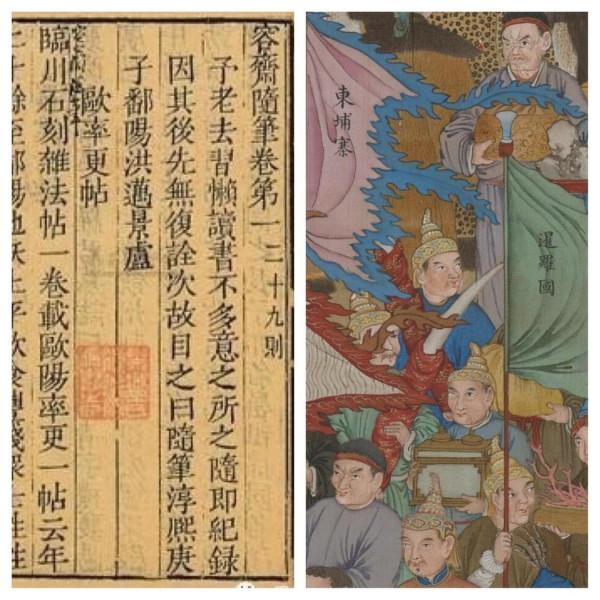 容齋隨筆卷第一 二十九則
予老去習懶讀書不多意之所之隨即紀錄
因其後先無復詮次故目之曰隨筆淳熙庚
子鄱陽洪邁景盧
歐率更帖
臨川石刻雜法帖一卷載歐陽率更一帖云年
二十餘至鄱陽地沃土平飲食豐賤衆士往
東埔寨
暹羅國